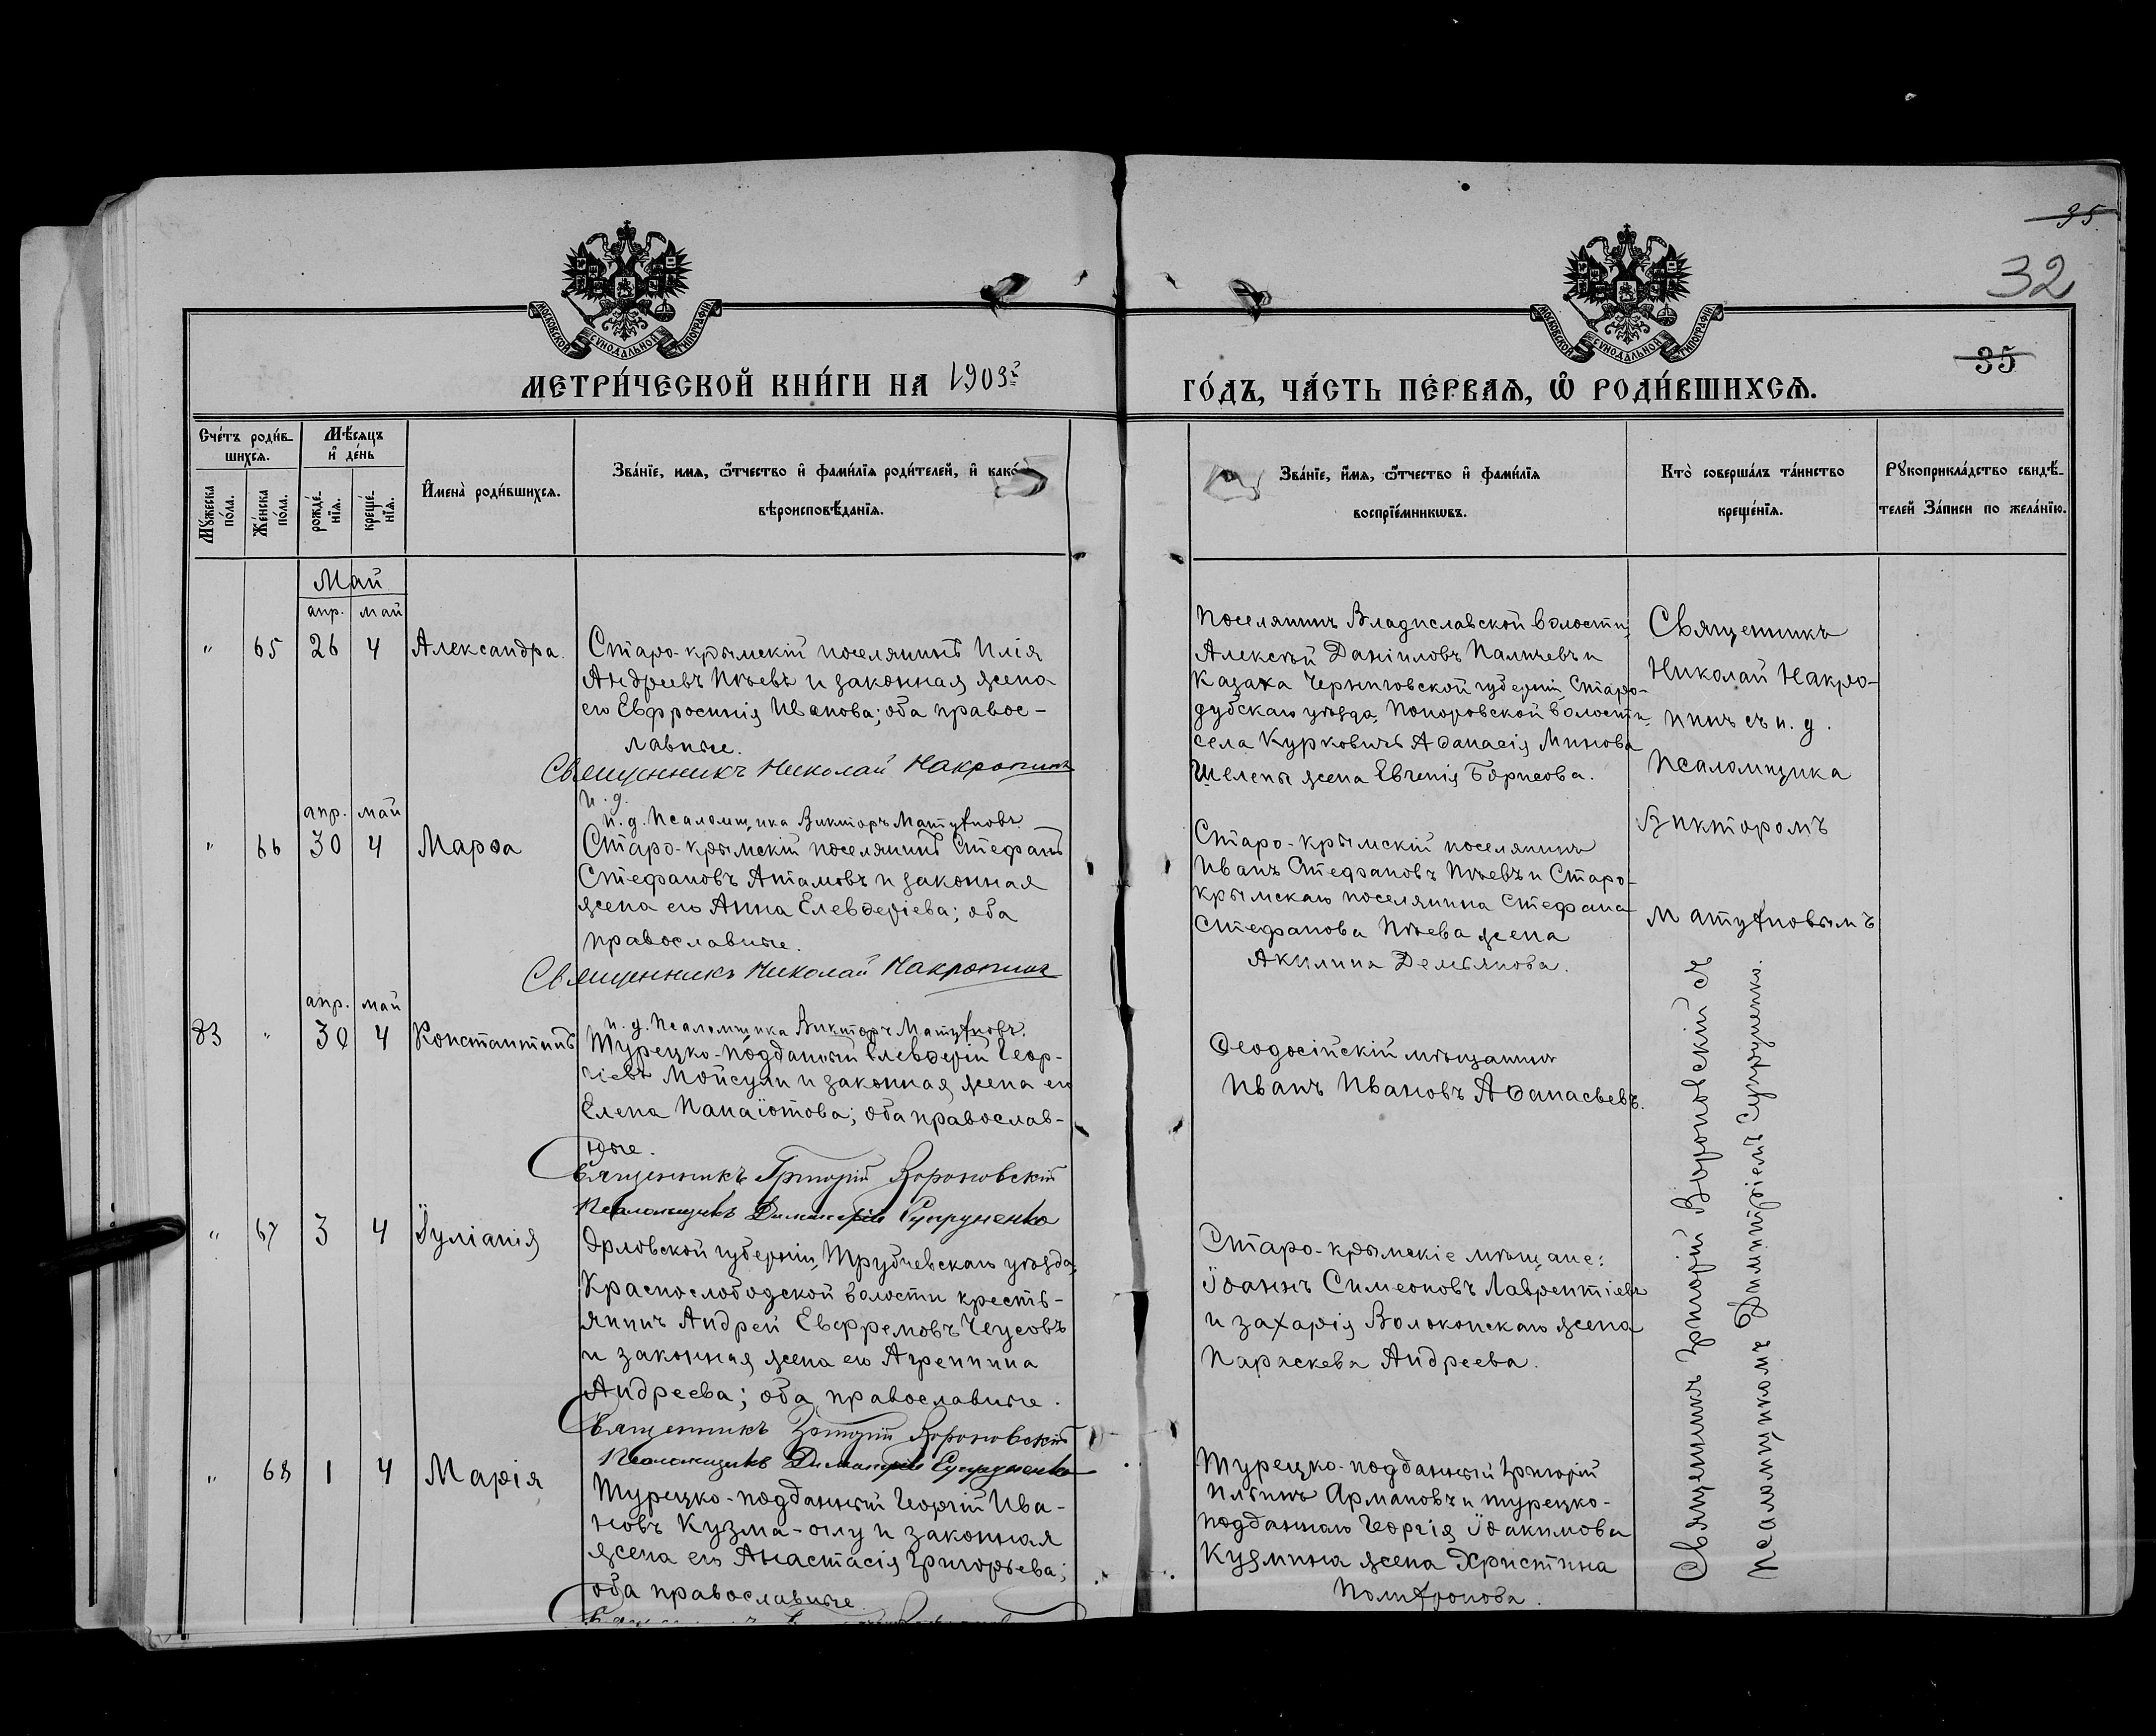 35
32
МОСКОВСКОЙ СѴНОДАЛЬНОЙ ТИПОГРАФІИ
МОСКОВСКОЙ СѴНОДАЛЬНОЙ ТИПОГРАФІИ
35
МЕТРИ́ЧЕСКОЙ КНИ́ГИ НА 1903й
ГО́ДЪ, ЧА́СТЬ ПЕ́РВАЯ, Ѡ РОДИ́ВШИХСѦ.
Сче́тъ роди́в-
шихсѧ.
Мꙋ́жеска по́ла.
Же́нска по́ла.
Мѣ́сѧцъ
и҆ де́нь
рожде́-
нїѧ.
креще́-
нїѧ.
И҆мена̀ роди́вшихсѧ.
Зва́нїе, имѧ, ѻ҆́тчество и҆ фами́лїѧ роди́телей, и҆ како́
вѣроисповѣ́данїѧ.
Зва́нїе, и҆́мѧ, ѻ҆́тчество и҆ фами́лїѧ
воспрїе́мникѡвъ.
Кто̀ соверша́лъ та́инство
креще́нїѧ.
Рꙋкоприкла́дство свидѣ́-
телей За́писи по жела́нїю.
Май
апр. май
" 65 26 4 Александра.
Старо-крымскій поселянинъ Илія
Андреевъ Пѣевъ и законная жена
его Евфросинія Иванова; оба правос-
лавные.
Священникъ Николай Накропинъ
и. д.
и. д. Псаломщика Викторъ Матуѱновъ.
Поселянинъ Владиславской волости,
Алексѣй Даніиловъ Паличевъ и
Казака Черниговской губерніи, Старо-
дубскаго уѣзда, Понуровской волости,
села Курковичъ Аѳанасія Минова
Шелепы жена Евгенія Борисова.
Священникъ
Николай Накро-
пинъ съ и. д.
Псаломщика
Викторомъ
Матуѱновымъ
апр. май
" 66 30 4 Марѳа
Старо-крымскій поселянинъ Стефанъ
Стефановъ Атамовъ и законная
жена его Анна Елевѳеріева; оба
православные.
Священникъ Николай Накропинъ
и. д. Псаломщика Викторъ Матуѱновъ.
Старо-крымскій поселянинъ
Иванъ Стефановъ Пѣевъ и Старо-
крымскаго поселянина Стефана
Стефанова Пѣева жена
Акилина Демьянова.
апр. май
83 " 30 4 Константинъ
Турецко-подданный Елевѳерій Геор-
гіевъ Мойсули и законная жена его
Елена Панаіотова; оба православ-
ные.
Священникъ Григорій Вороновскій
Псаломщикъ Димитрій Супруненко
Ѳеодосійскій мѣщанинъ
Иванъ Ивановъ Аѳанасьевъ.
Священникъ Григорій Вороновскій съ
Псаломщикомъ Димитріемъ Супруненко.
" 67 3 4 Іуліанія
Орловской губерніи, Трубчевскаго уѣзда,
Краснослободской волости кресть-
янинъ Андрей Евфремовъ Чеусовъ
и законная жена его Агреппина
Андреева; оба православные.
Священникъ Григорій Вороновскій
Псаломщикъ Димитрій Супруненко
Старо-крымскіе мѣщане:
Іоаннъ Симеоновъ Лаврентіевъ
и Захарія Волоконскаго жена
Параскева Андреева.
" 68 1 4 Марія
Турецко-подданный Георгій Ива-
новъ Кузма-оглу и законная
жена его Анастасія Григорьева;
оба православные.
Турецко-подданный Григорій
Ильинъ Армановъ и турецко-
подданнаго Георгія Іоакимова
Кузмина жена Христина
Полихронова.